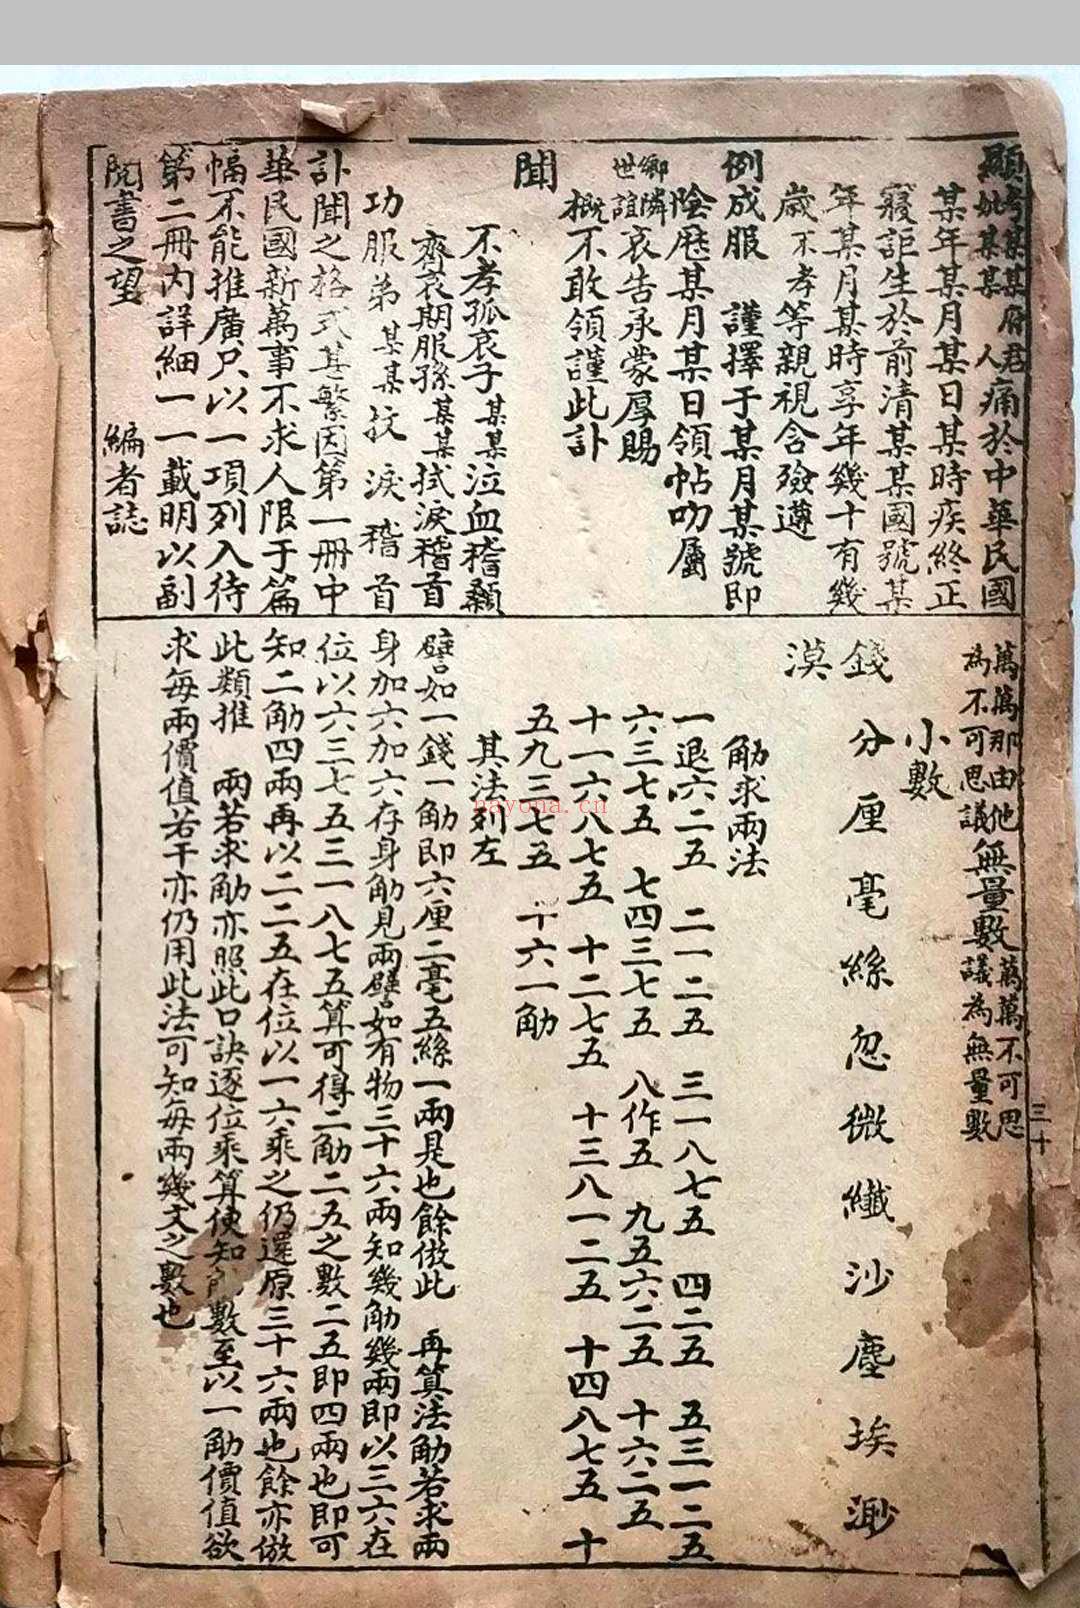 顯考某某府君
妣某某人痛於中華民國
某年某月某日某時疾終正
寢詎生於前清某某國號某
年某月某時享年幾十有幾
歲不孝等親視含殮遵
例成服　謹擇于某月某號即
陰厯某月某日領帖叨屬
鄉隣
世誼哀告承蒙厚賜
概不敢領謹此訃
聞
不孝孤哀子某某泣血稽顙
齊衰期服孫某某拭淚稽首
功服弟某某抆淚稽首
訃聞之格式甚繁因第一冊中
華民國新萬事不求人限于篇
幅不能推廣只以一項列入待
第二冊內詳細一一載明以副
閱書之望　編者誌
萬萬那由他
為不可思議無量數萬萬不可思
議為無量數
三十
小數
錢分厘毫絲忽微纖沙塵埃渺
漠
觔求兩法
一退六二五　二一二五　三一八七五　四二五　五三一二五
六三七五　七四三七五　八作五　九五六二五　十六二五
十一六八七五　十二七五　十三八一二五　十四八七五　十
五九三七五　十六一觔
其法列左
譬如一錢一觔即六厘二毫五絲一兩是也餘倣此　再算法觔若求兩
身加六加六存身觔見兩譬如有物三十六兩知幾觔幾兩即以三六在
位以六三七五三一八七五算可得二觔二五之數二五即四兩也即可
知二觔四兩再以二二五在位以一六乘之仍還原三十六兩也餘亦倣
此類推　兩若求觔亦照此口訣逐位乘算使知數至以一觔價值欲
求每兩價值若干亦仍用此法可知每兩幾文之數也
nayona.cn